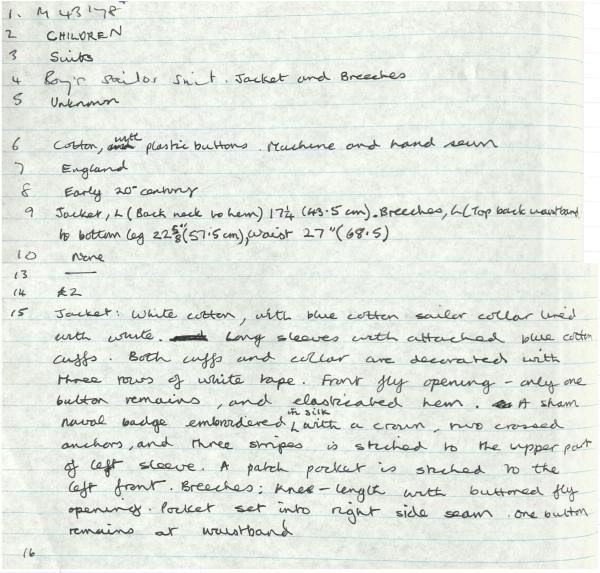 1. M 43178
2 CHILDREN
3 Suits
4 Boy's Sailor Suit. Jacket and Breeches
5 Unknown
6 Cotton, with plastic buttons. Machine and hand sewn
7 England
8 Early 20th century
9 Jacket, L (Back neck to hem) 17¼ (43.5 cm). Breeches, L (Top back waistband
to bottom leg 22⅝" (57.5cm), Waist 27" (68.5)
10 None
13 —
14 £2
15 Jacket: White cotton, with blue cotton sailor collar lined
with white. Long sleeves with attached blue cotton
cuffs. Both cuffs and collar are decorated with
three rows of white tape. Front fly opening - only one
button remains, and elasticated hem. A sham
naval badge embroidered in silk with a crown, two crossed
anchors, and three stripes is stiched to the upper part
of left sleeve. A patch pocket is stiched to the
left front. Breeches: Knee-length with buttoned fly
opening. Pocket set into right side seam. One button
remains at waistband
16